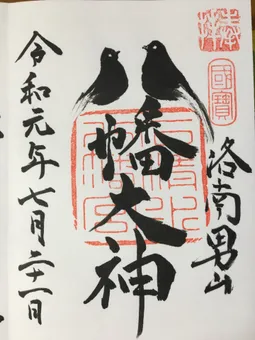 國寶
洛南男山
八幡大神
令和元年七月二十一日